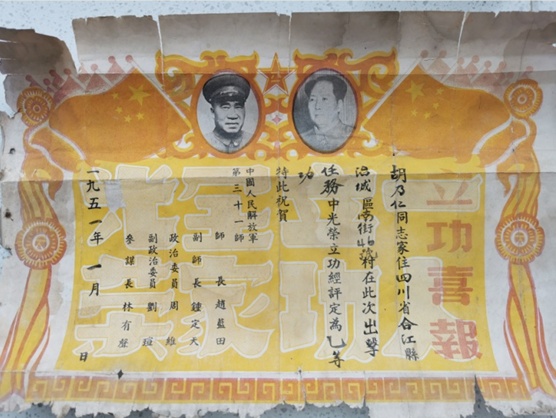 立功喜報
胡乃仁同志家住四川省合江縣
治城區南街村在此次出擊
任務中光榮立功經評定為乙等
功
特此祝賀
中國人民解放軍
第三十一師
師長 趙藍田
副師長 鍾定天
政治委員 周維
副政治委員 劉瑄
參謀長 林有聲
一九五一年 一月 日